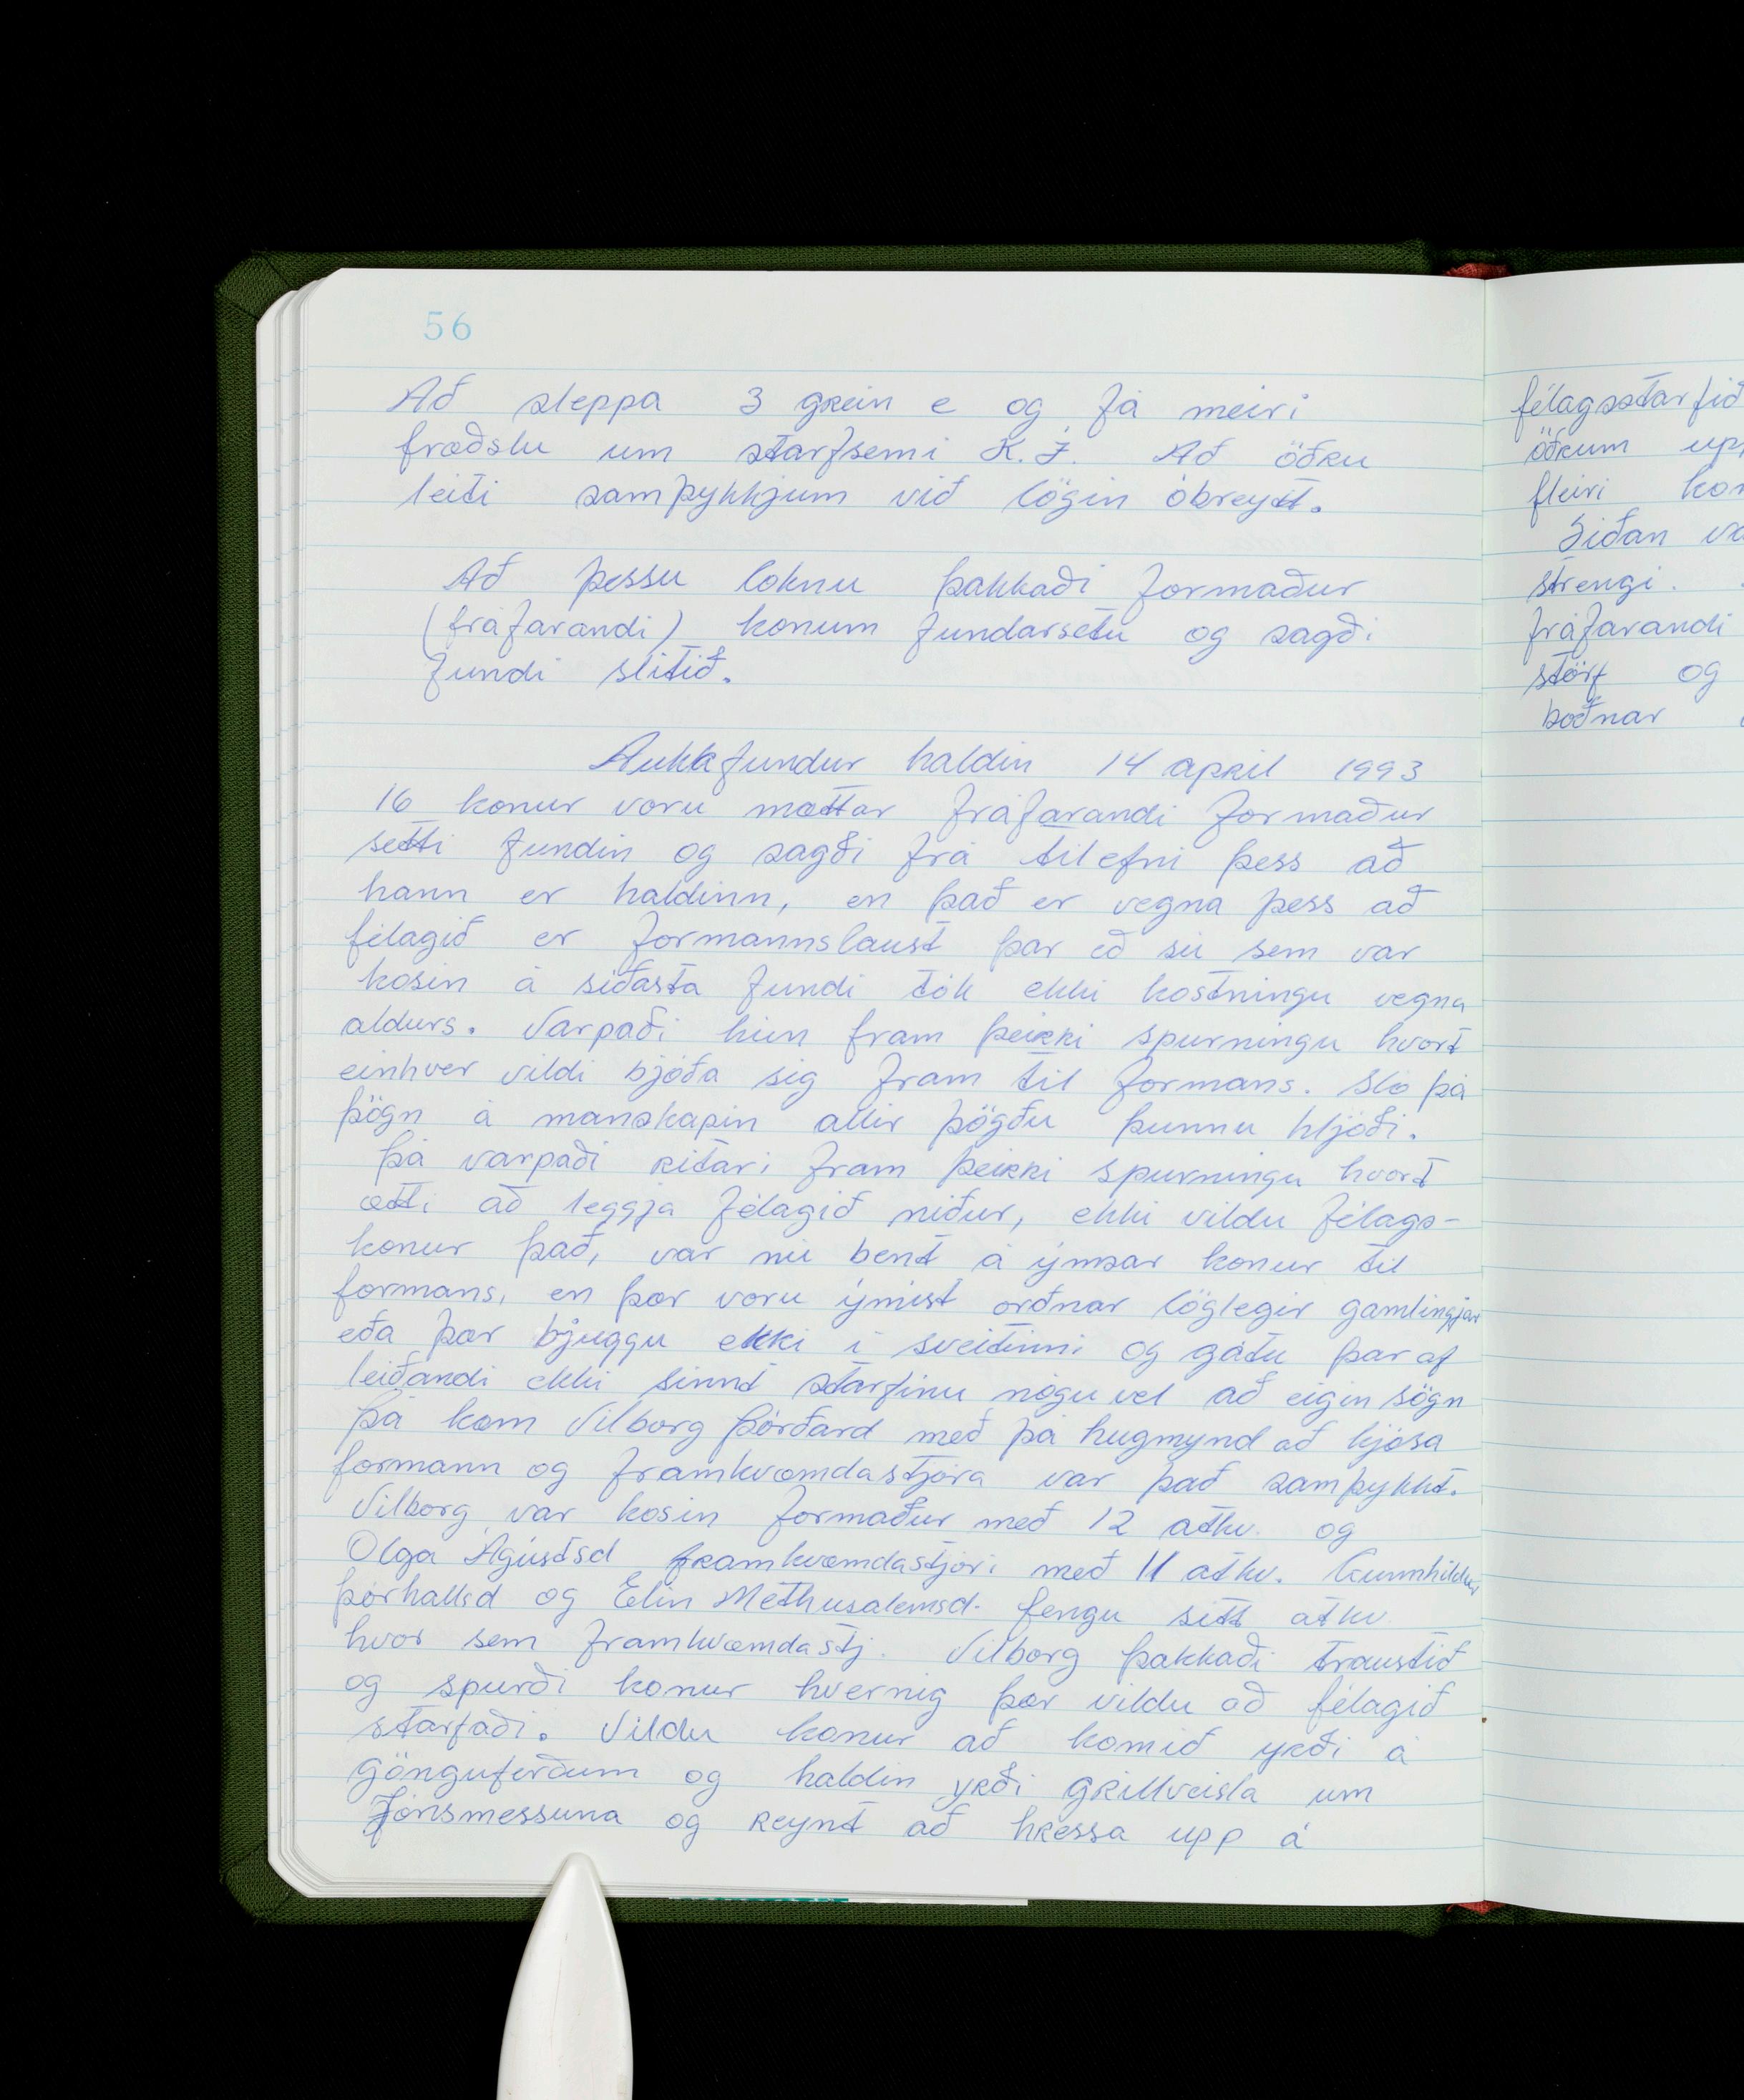 56
Að sleppa 3 grein e og fá meiri
fræðslu um starfsemi K.Í. Að öðru
leiti samþykkjum við lögin óbreytt.
Að þessu loknu þakkaði formaður
(fráfarandi) konum fundarsetu og sagði
fundi slitið.
Aukkafundur haldin 14 april 1993
16 konur voru mættar fráfarandi formaður
setti fundin og sagði frá tilefni þess að
hann er haldinn, en það er vegna þess að
félagið er formannslaust þar eð sú sem var
kosin á síðasta fundi tók ekki kostningu vegna
aldurs. Varpaði hún fram þeirri spurningu hvort
einhver vildi bjóða sig fram til formans. Sló þá
þögn á manskapin allir þögðu þunnu hljóði.
Þá varpaði ritari fram þeirri spurningu hvort
ætti að leggja félagið niður, ekki vildu félags-
konur það, var nú bent á ýmsar konur til
formans, en þær voru ýmist orðnar löglegir gamlingjar
eða þær bjuggu ekki í sveitinni og gátu þar af
leiðandi ekki sinnt starfinu nógu vel að eigin sögn
Þá kom Vilborg Þórðard með þá hugmynd að kjósa
formann og framkvæmdastjóra var það samþykkt.
Vilborg var kosin formaður með 12 atkv. og
Olga Ágústsd framkvæmdastjóri með 11 atkv. Gunnhildur
Þórhallsd og Elín Methusalemsd. fengu sitt atkv
hvor sem framkvæmdastj. Vilborg þakkaði traustið
og spurði konur hvernig þær vildu að félagið
starfaði. Vildu konur að komið yrði á
gönguferðum og haldin yrði grillveisla um
Jónsmessuna og reynt að hressa upp á
félagsstarfið
öðrum
fleiri
Síðan
strengi.
fráfarandi
störf og
boðnar